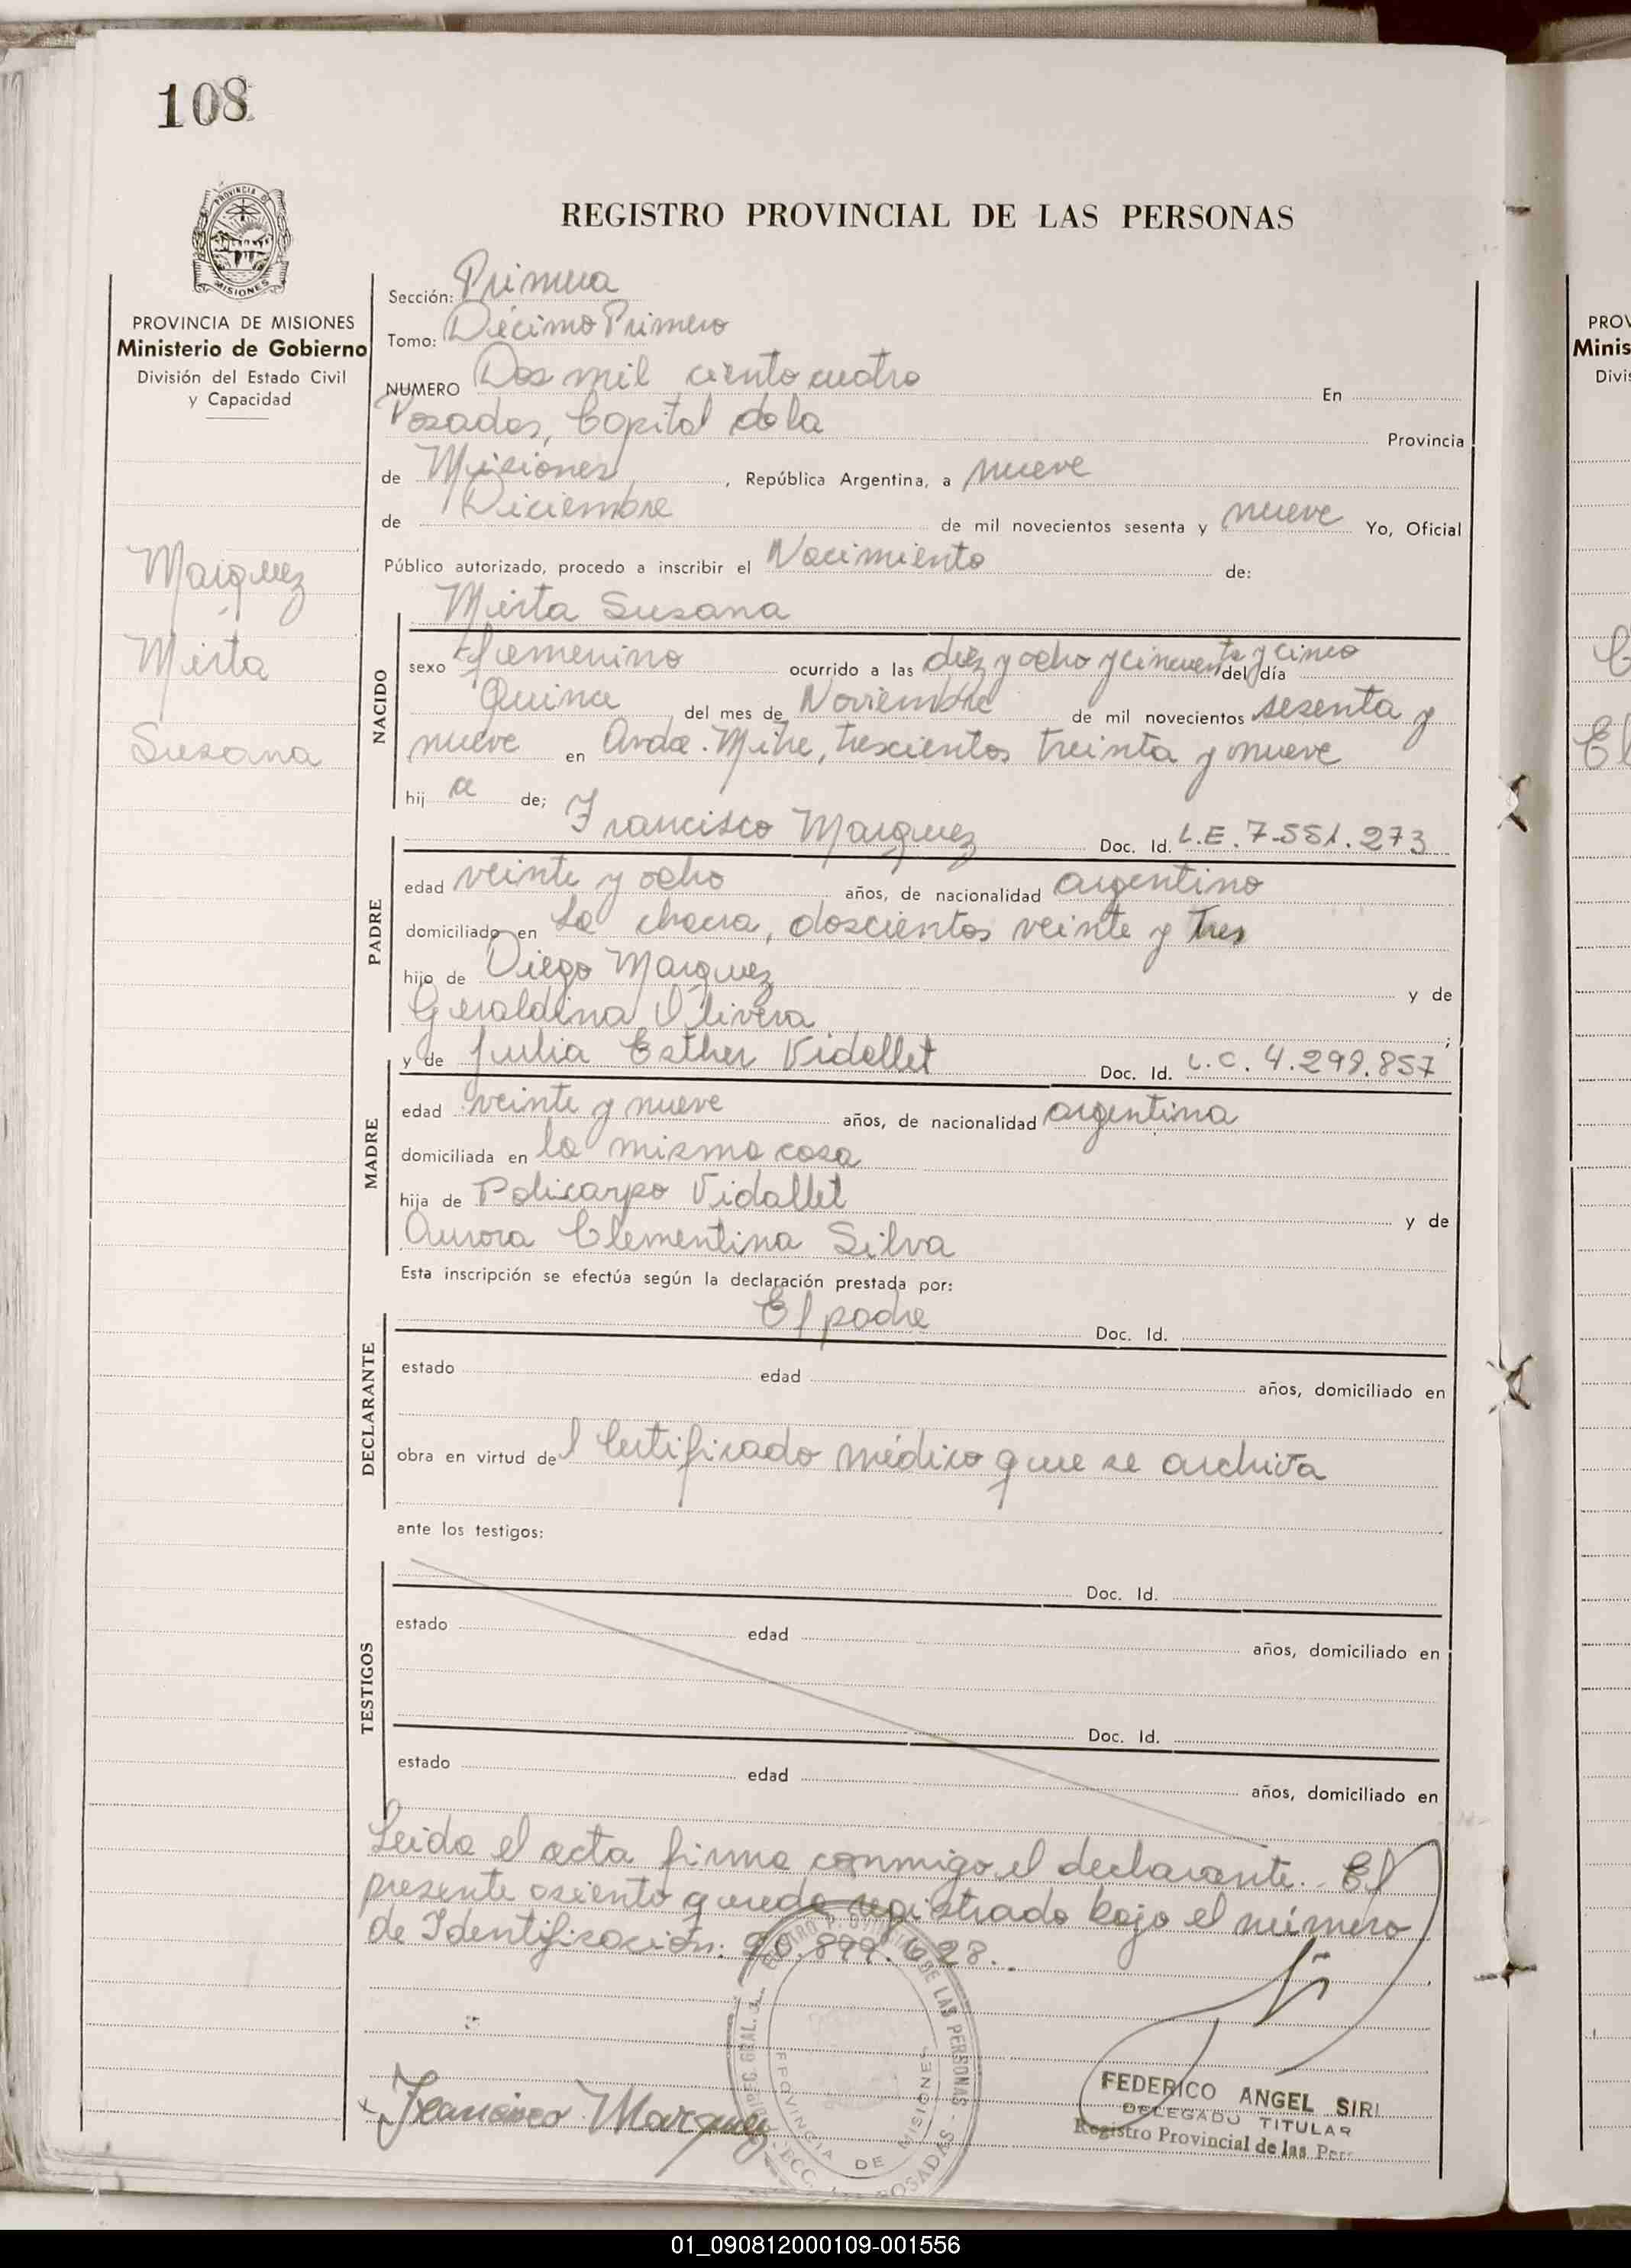 108
REGISTRO PROVINCIAL DE LAS PERSONAS
PROVINCIA DE MISIONES
Ministerio de Gobierno
División del Estado Civil
y Capacidad
Marquez
Mirta
Susana
Sección: Primera
Tomo: Décimo Primero
NUMERO Dos mil ciento cuatro En
Posadas, Capital de la Provincia
de Misiones, República Argentina, a nueve
de Diciembre de mil novecientos sesenta y nueve Yo, Oficial
Público autorizado, procedo a inscribir el Nacimiento de:
Mirta Susana
NACIDO
sexo femenino ocurrido a las diez y ocho y cincuenta y cinco del día
Quince del mes de Noviembre de mil novecientos sesenta y
nueve en Avda. Mitre, trescientos treinta y nueve
hij a de;
Francisco Marquez Doc. Id. L.E. 7.551.273
PADRE
edad veinte y ocho años, de nacionalidad argentino
domiciliado en La chacra, doscientos veinte y tres
hijo de Diego Marquez y de
Geraldina Olivera ;
y de Julia Esther Vidallet Doc. Id. L.C. 4.299.857
MADRE
edad veinte y nueve años, de nacionalidad argentina
domiciliada en la misma casa
hija de Policarpo Vidallet y de
Aurora Clementina Silva
Esta inscripción se efectúa según la declaración prestada por:
El padre Doc. Id.
DECLARANTE
estado edad años, domiciliado en
obra en virtud del Certificado médico que se archiva
ante los testigos:
Doc. Id.
TESTIGOS
estado edad años, domiciliado en
Doc. Id.
estado edad años, domiciliado en
Leida el acta firma conmigo el declarante. El
presente asiento queda registrado bajo el número
de Identificación: 20.899.628.
Francisco Marquez
PROVINCIA DE MISIONES
DE LAS PERSONAS - POSADAS
FEDERICO ANGEL SIRI
DELEGADO TITULAR
Registro Provincial de las Pers
PROV
Minis
Divis
El
01_090812000109-001556